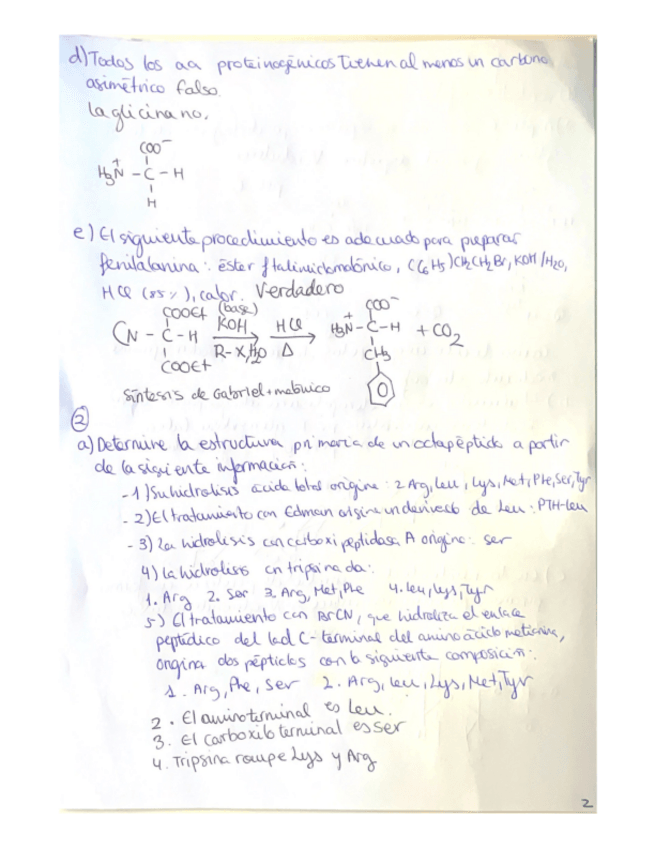 d) Todos los aa proteinogénicos tienen al menos un carbono
asimétrico falso.
La glicina no.
COO⁻
H₃N⁺ - C - H
H
e) El siguiente procedimiento es adecuado para preparar
fenilalanina: éster ftalimidomalónico, (C6H5)CH2CH2Br, KOH/H2O,
HCl (85%), calor. Verdadero
COOEt (base) COO⁻
CN - C - H KOH HCl H₃N⁺ - C - H + CO2
R-X, H2O Δ CH2
COOEt
síntesis de Gabriel + malónico
②
a) Determine la estructura primaria de un octapéptido a partir
de la siguiente información:
- 1) Su hidrólisis ácida total origina: 2 Arg, Leu, Lys, Met, Phe, Ser, Tyr
- 2) El tratamiento con Edman origina un derivado de Leu: PTH-Leu
- 3) La hidrólisis con carboxipeptidasa A origina: ser
4) La hidrólisis con tripsina da:
1. Arg 2. Ser 3. Arg, Met, Phe 4. Leu, Lys, Tyr
5) El tratamiento con BrCN, que hidroliza el enlace
peptídico del lado C-terminal del aminoácido metionina,
origina dos péptidos con la siguiente composición:
1. Arg, Phe, Ser 2. Arg, Leu, Lys, Met, Tyr
2. El amino terminal es Leu.
3. El carboxilo terminal es ser
4. Tripsina rompe Lys y Arg
2